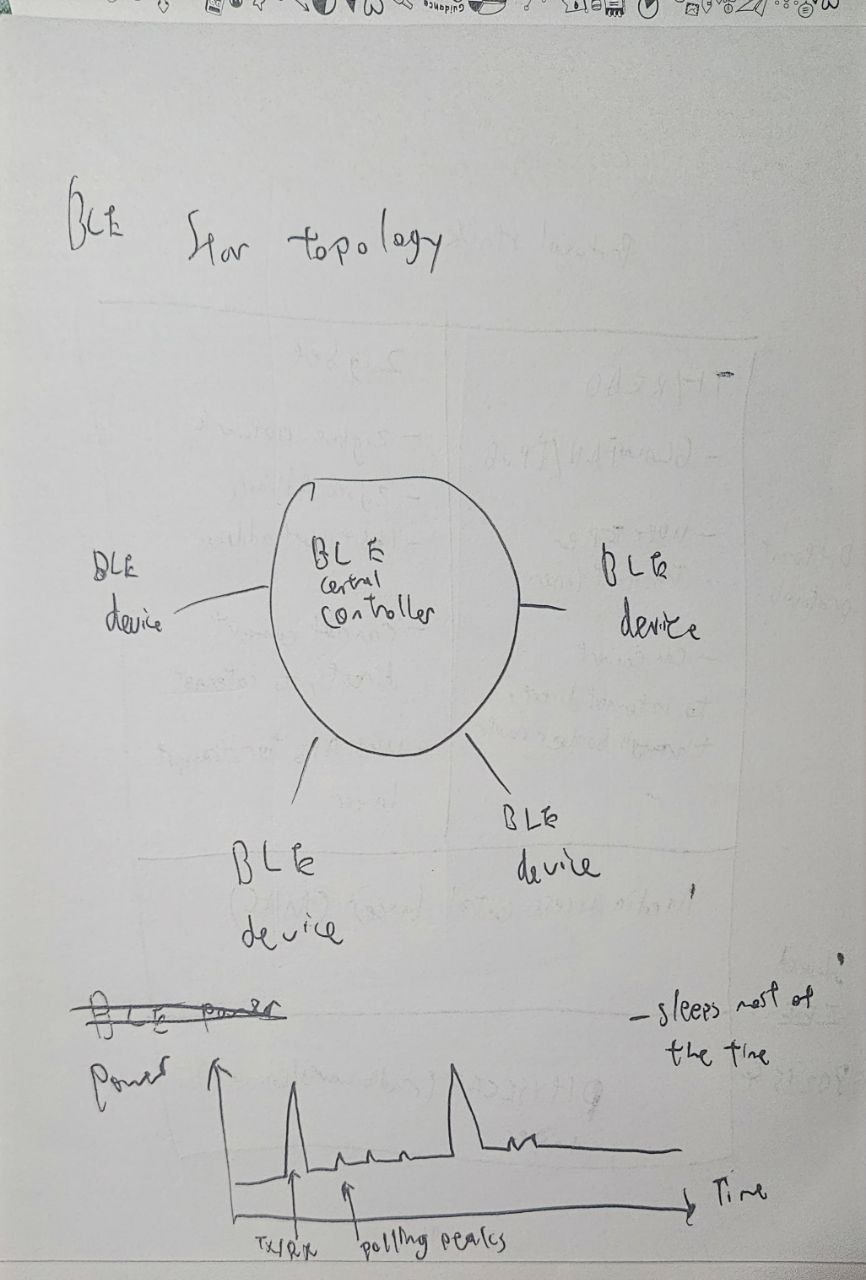 Guidance
BLE Star topology
BLE
device
BLE
central
controller
BLE
device
BLE
device
BLE
device
BLE power
- sleeps most of
the time
Power
Time
Tx/Rx
polling peaks